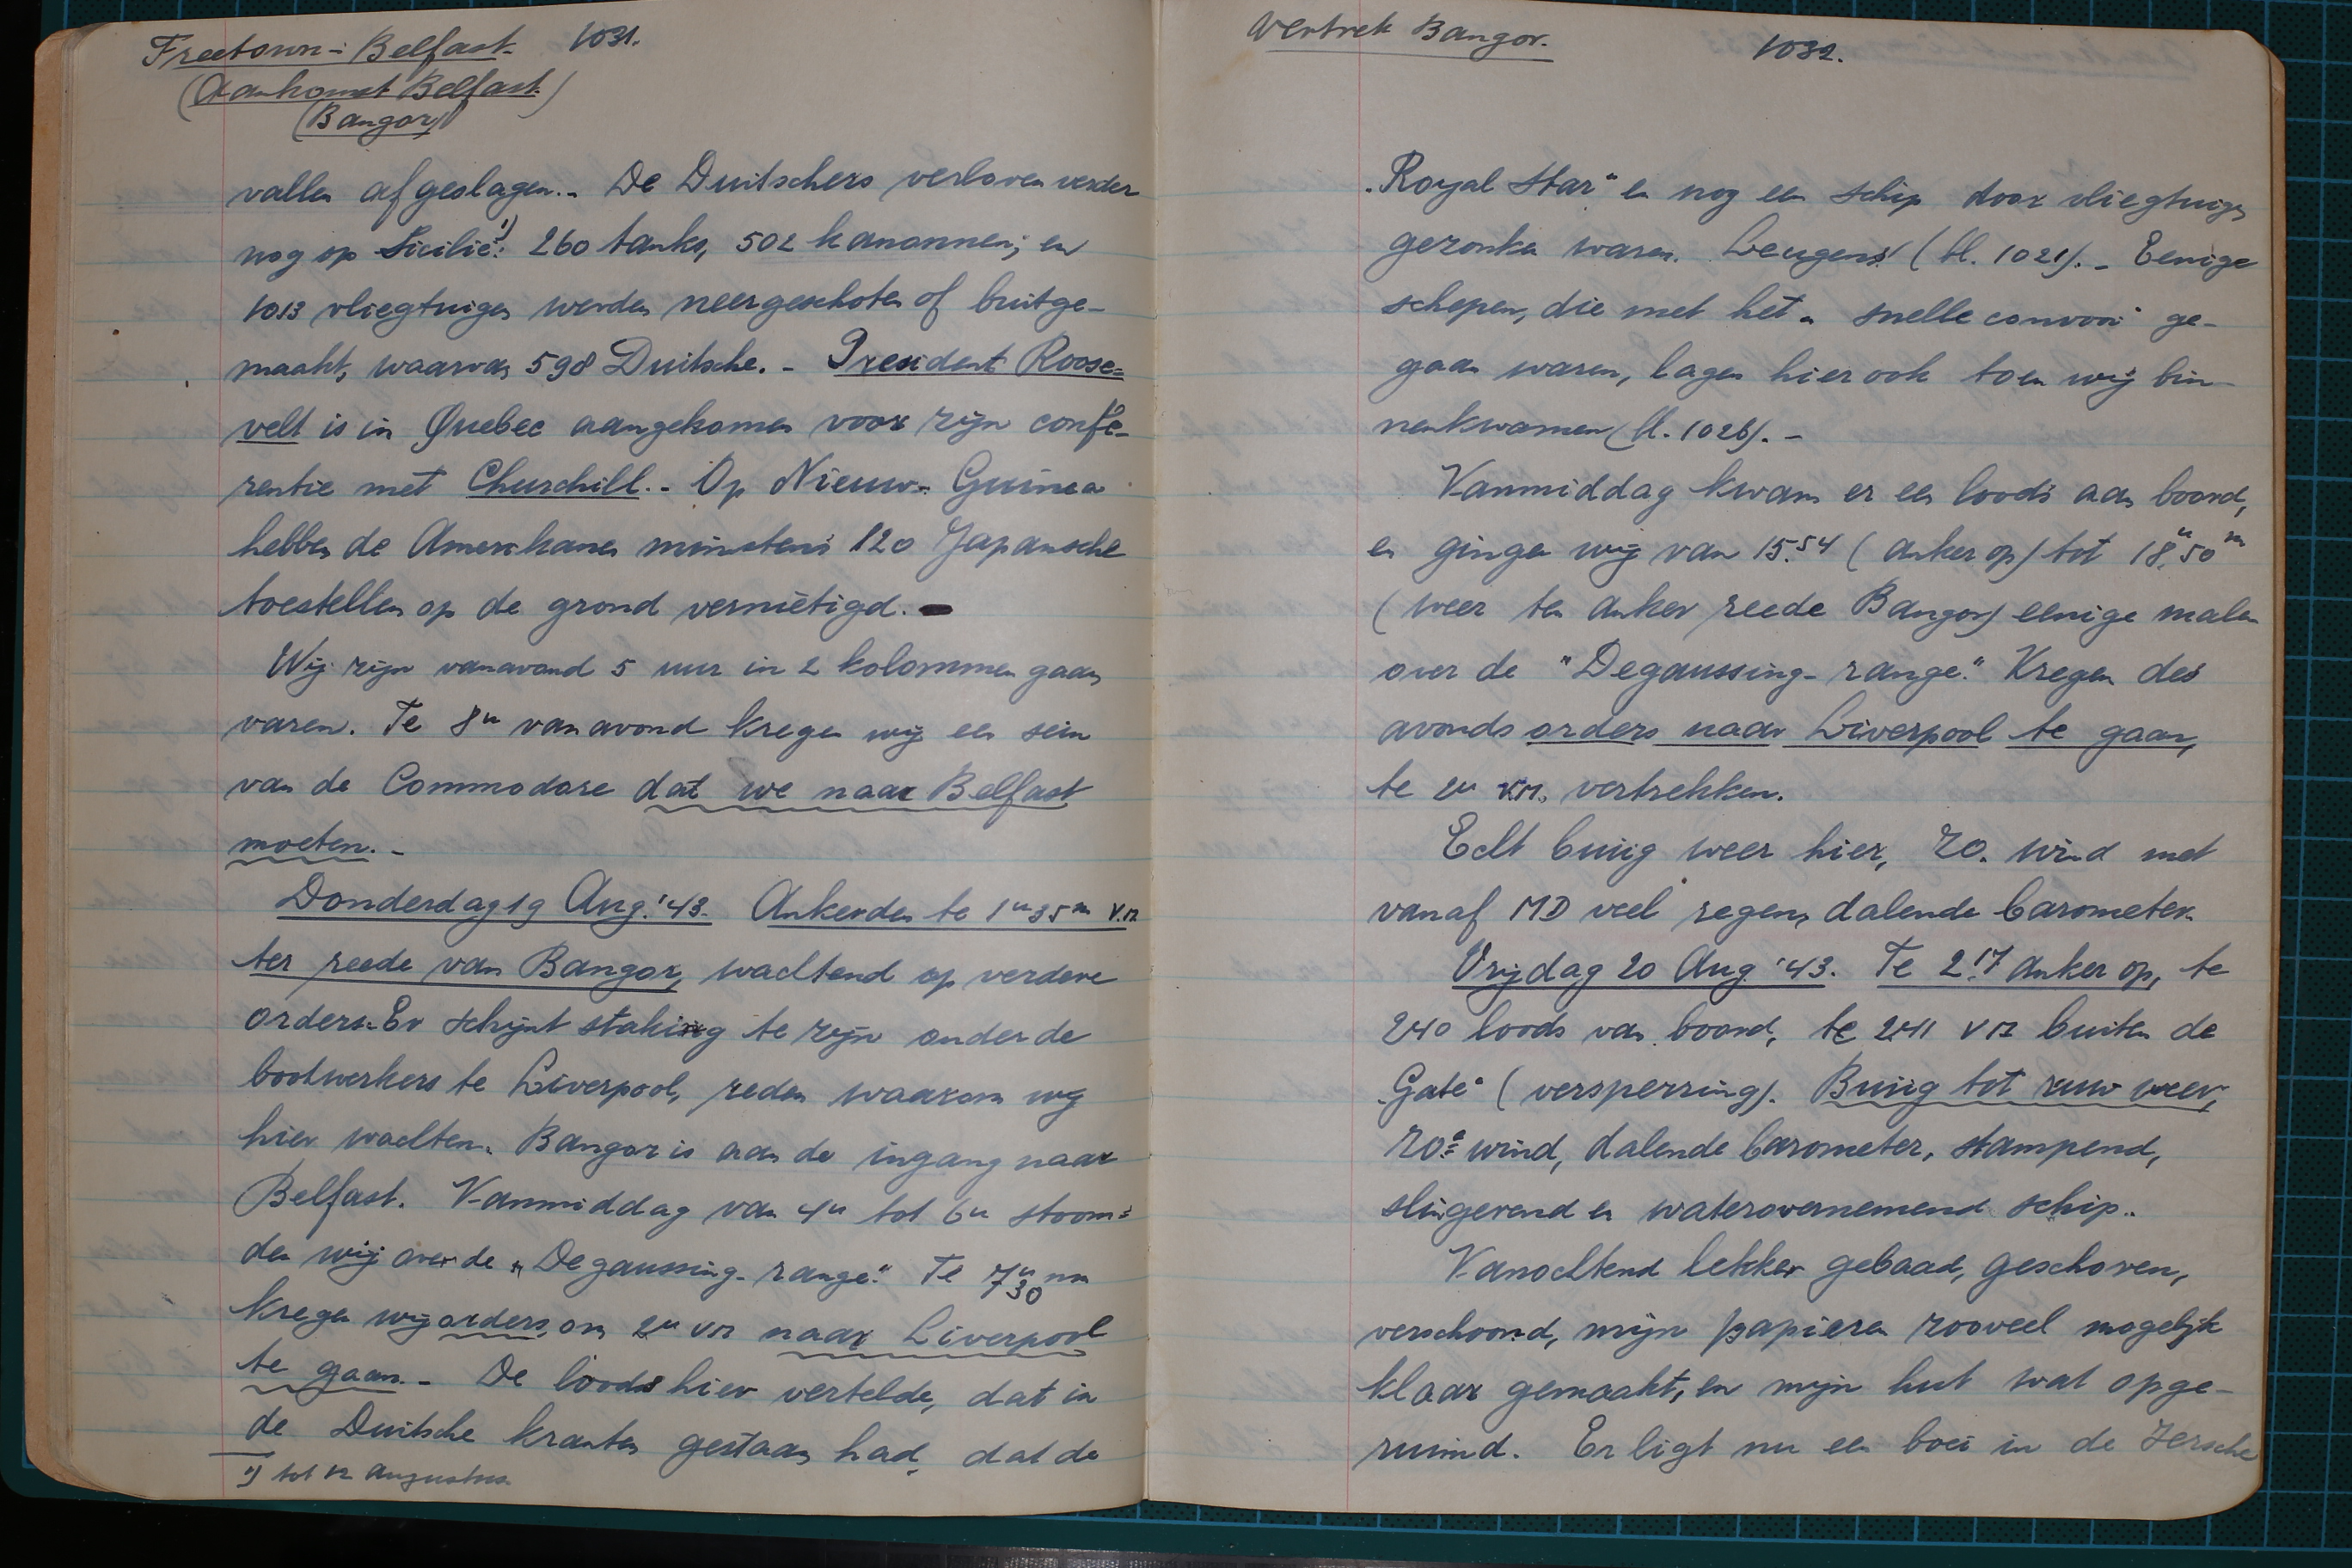 Freetown-Belfast. 1031.
(Aankomst Belfast.)
(Bangor)
vallen afgeslagen.- De Duitschers verloren verder
nog op Sicilië 1): 260 tanks, 502 kanonnen; en
1013 vliegtuigen werden neergeschoten of buitge-
maakt, waarvan 598 Duitsche. - President Roose=
velt is in Quebec aangekomen voor zijn confe-
rentie met Churchill.- Op Nieuw-Guinea
hebben de Amerikanen minstens 120 Japansche
toestellen op de grond vernietigd. -
Wij zijn vanavond 5 uur in 2 kolommen gaan
varen. Te 8u vanavond kregen wij een sein
van de Commodore dat we naar Belfast
moeten. -
Donderdag 19 Aug. '43. Ankerden te 1u 35m VM
ter reede van Bangor, wachtend op verdere
orders. Er schijnt staking te zijn onder de
bootwerkers te Liverpool, reden waarom wij
hier wachten. Bangor is aan de ingang naar
Belfast. Vanmiddag van 4u tot 6u stoom=
den wij over de „Degaussing-range." Te 7u30 nm
kregen wij orders, om 2u VM naar Liverpool
te gaan. - De loods hier vertelde, dat in
de Duitsche kranten gestaan had, dat de
1) tot 12 augustus
Vertrek Bangor. 1032.
„Royal Star" en nog een schip door vliegtuigen
gezonken waren. Leugens! (bl. 1021). - Eenige
schepen, die met het „snelle convooi" ge-
gaan waren, lagen hier ook toen wij bin-
nenkwamen (bl. 1026). -
Vanmiddag kwam er een loods aan boord,
en gingen wij van 15.54 (anker op) tot 18u50m
(weer ten anker reede Bangor) eenige malen
over de "Degaussing-range." Kregen des
avonds orders naar Liverpool te gaan,
te 2u VM. vertrekken.
Echt buiig weer hier, ZO. wind met
vanaf MD veel regen, dalende barometer.
Vrijdag 20 Aug. '43. Te 2.17 anker op, te
240 loods van boord, te 241 VM buiten de
„Gate" (versperring). Buiig tot ruw weer,
ZO.e wind, dalende barometer, stampend,
slingerend en waterovernemend schip..
Vanochtend lekker gebaad, geschoren,
verschoond, mijn papieren zooveel mogelijk
klaar gemaakt, en mijn hut wat opge-
ruimd. Er ligt nu een boei in de Iersche